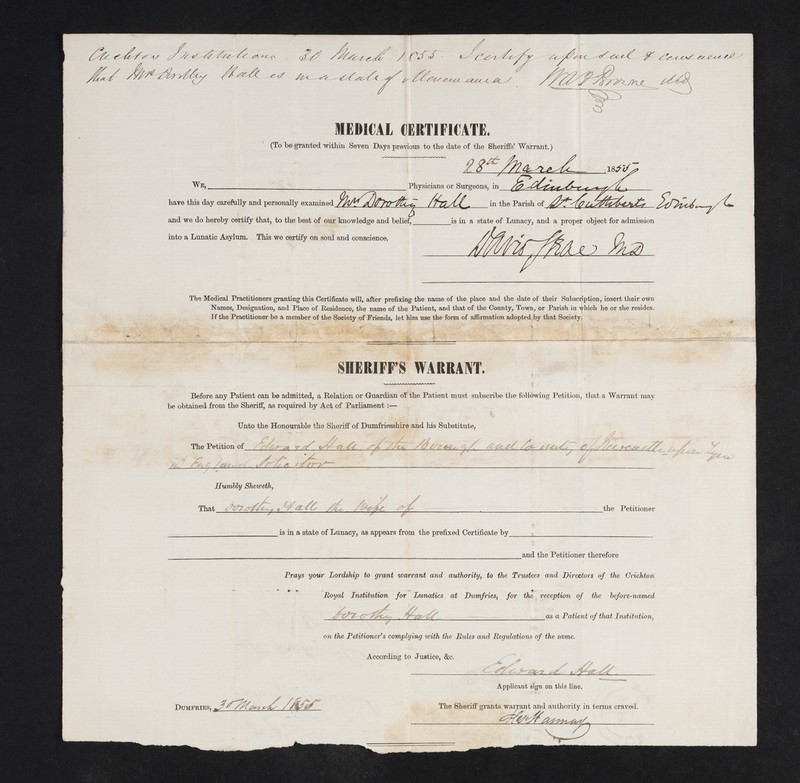 Crichton Institution. 30 March 1855. I certify upon soul & conscience
that Mrs Dorothy Hall is in a state of Monomania. W A F Browne MD
MEDICAL CERTIFICATE.
(To be granted within Seven Days previous to the date of the Sheriffs' Warrant.)
28th March 1855
WE, Physicians or Surgeons, in Edinburgh
have this day carefully and personally examined Mrs Dorothy Hall in the Parish of St. Cuthberts Edinburgh
and we do hereby certify that, to the best of our knowledge and belief, is in a state of Lunacy, and a proper object for admission
into a Lunatic Asylum. This we certify on soul and conscience.
David Skae MD
The Medical Practitioners granting this Certificate will, after prefixing the name of the place and the date of their Subscription, insert their own
Names, Designation, and Place of Residence, the name of the Patient, and that of the County, Town, or Parish in which he or she resides.
If the Practitioner be a member of the Society of Friends, let him use the form of affirmation adopted by that Society.
SHERIFF'S WARRANT.
Before any Patient can be admitted, a Relation or Guardian of the Patient must subscribe the following Petition, that a Warrant may
be obtained from the Sheriff, as required by Act of Parliament :—
Unto the Honourable the Sheriff of Dumfriesshire and his Substitute,
The Petition of Edward Hall of the Borough and County of Newcastle upon Tyne
in England Solicitor
Humbly Sheweth,
That Dorothy Hall the Wife of the Petitioner
is in a state of Lunacy, as appears from the prefixed Certificate by
and the Petitioner therefore
Prays your Lordship to grant warrant and authority, to the Trustees and Directors of the Crichton
Royal Institution for Lunatics at Dumfries, for the reception of the before-named
Dorothy Hall as a Patient of that Institution,
on the Petitioner's complying with the Rules and Regulations of the same.
According to Justice, &c.
Edward Hall
Applicant sign on this line.
DUMFRIES, 30 March 1855 The Sheriff grants warrant and authority in terms craved.
Hannay